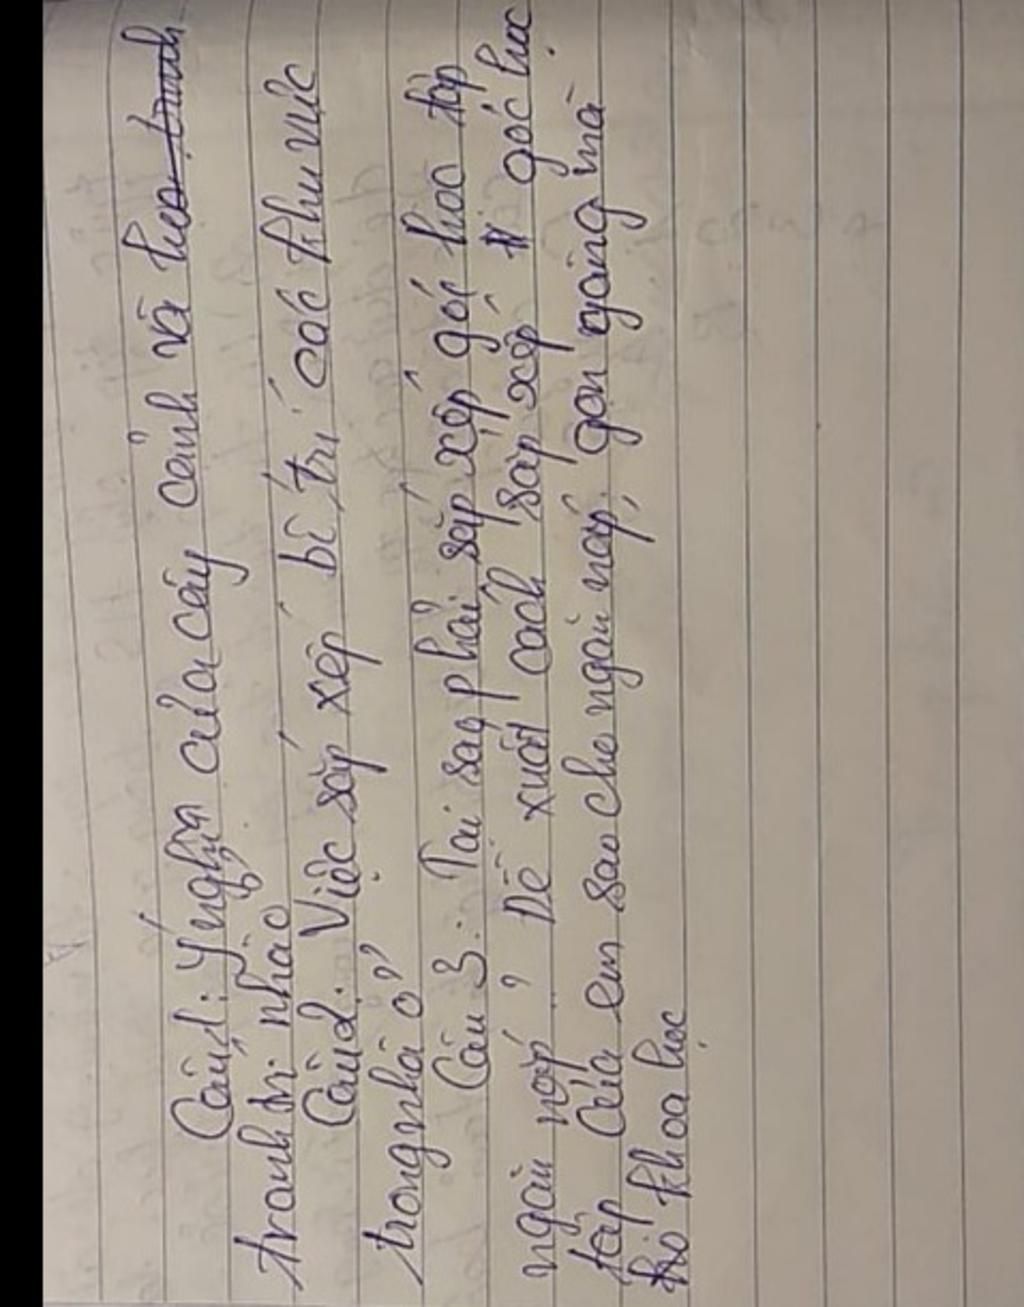 Câu 1: Ý nghĩa của cây cảnh và hoa tranh
tranh trí nhà ở
Câu 2: Việc sắp xếp bố trí các khu vực
trong nhà ở
Câu 3: Tại sao phải sắp xếp góc học tập
ngăn nắp? Đề xuất cách sắp xếp góc học
tập của em sao cho ngăn nắp, gọn gàng mà
khoa học